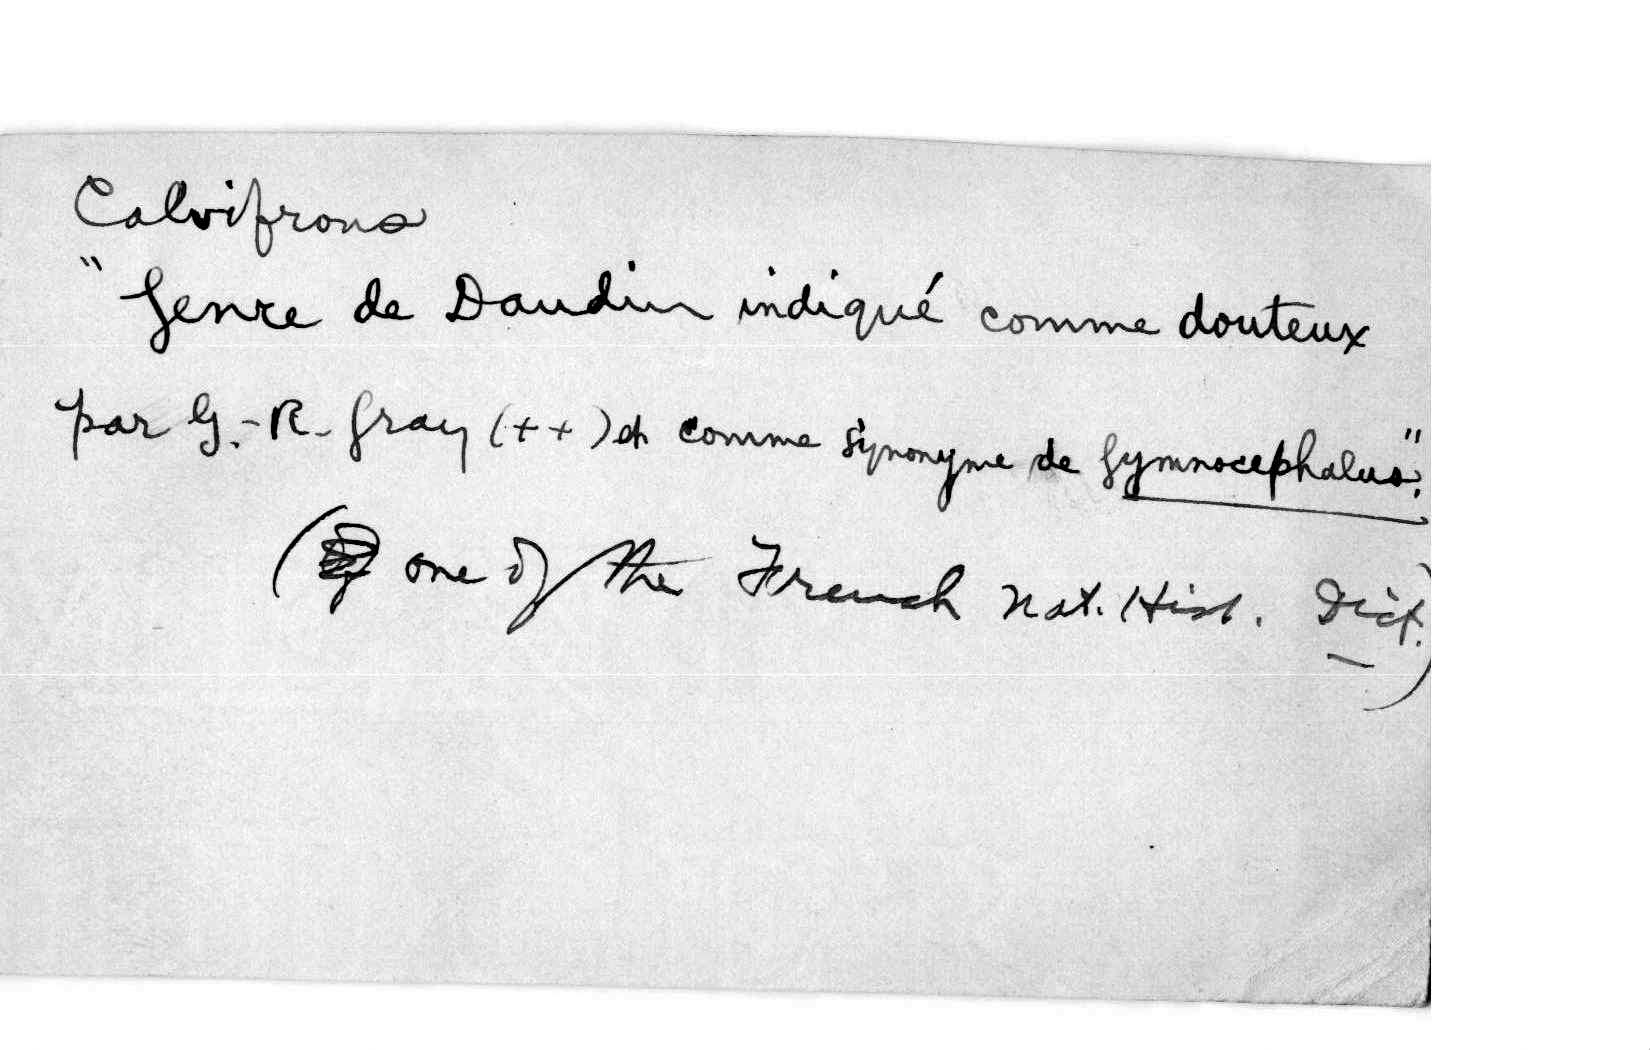 Calvifrons
"Genre de Daudin indiqué comme douteux
par G.-R. Gray (++) et comme synonyme de Gymnocephalus."
( one of the French Nat. Hist. Dict.)